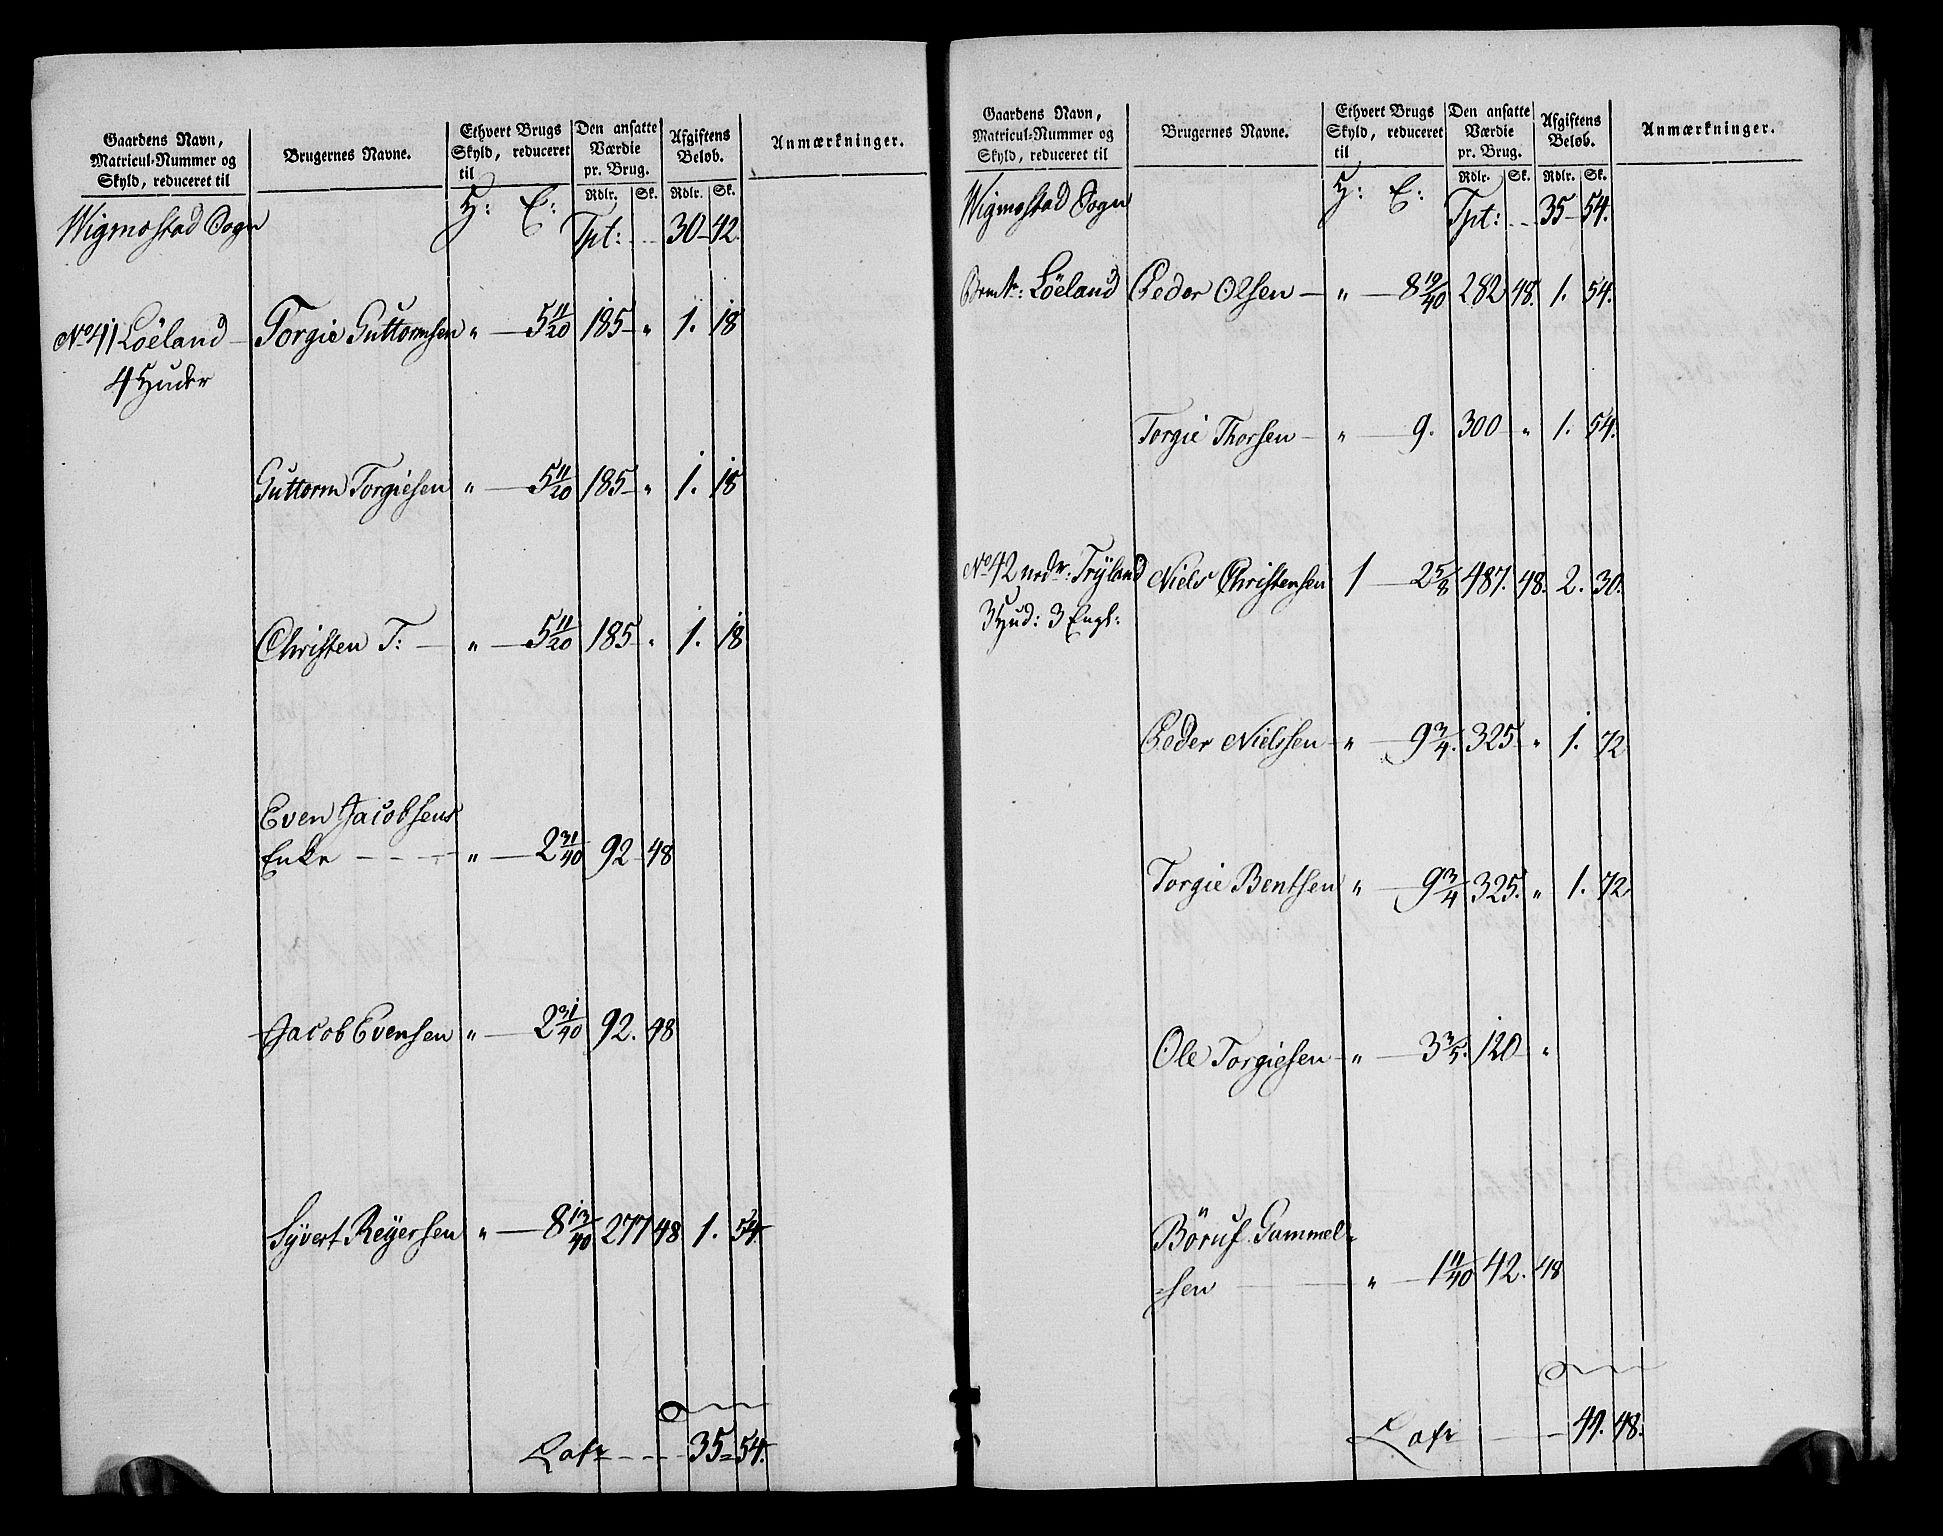 Gaardens Navn,
Matricul-Nummer og
Skyld, reduceret til
Brugernes Navne.
Ethvert Brugs
Skyld, reduceret
til
Den ansatte
Værdie
pr. Brug.
Afgiftens
Beløb.
Anmærkninger.
Rdlr. Sk. Rdlr. Sk.
Wigmostad Sogn H: E: Tpt: 30 42.
No 41 Löeland Torgie Guttormsen " 5 11/20 185 " 1. 18
4 Huder
Guttorm Torgiesen " 5 11/20 185 " 1. 18
Christen T: " 5 11/20 185 " 1. 18
Even Jacobsens
Enke " 2 31/40 92 48
Jacob Evensen " 2 31/40 92. 48
Syvert Reyersen " 8 13/40 277 48 1. 54.
Lat 35 = 54.
Gaardens Navn,
Matricul-Nummer og
Skyld, reduceret til
Brugernes Navne.
Ethvert Brugs
Skyld, reduceret
til
Den ansatte
Værdie
pr. Brug.
Afgiftens
Beløb.
Anmærkninger.
Rdlr. Sk. Rdlr. Sk.
Wigmostad Sogn H: E: Tpt: 35 54.
Löeland Peder Olsen " 8 19/40 282 48. 1. 54.
Torgie Thorsen " 9. 300 " 1. 54.
No 42 nedr: Trÿland Niels Christensen 1 2 5/8 487. 48. 2. 30.
3 Hud: 3 Engl:
Peder Nielssen " 9 3/4. 325 " 1. 72
Torgie Bentsen " 9 3/4 325. " 1. 72
Ole Torgiesen " 3 3/5. 120 "
Böruf Gummel=
=sen " 1 11/40 42. 48
48.